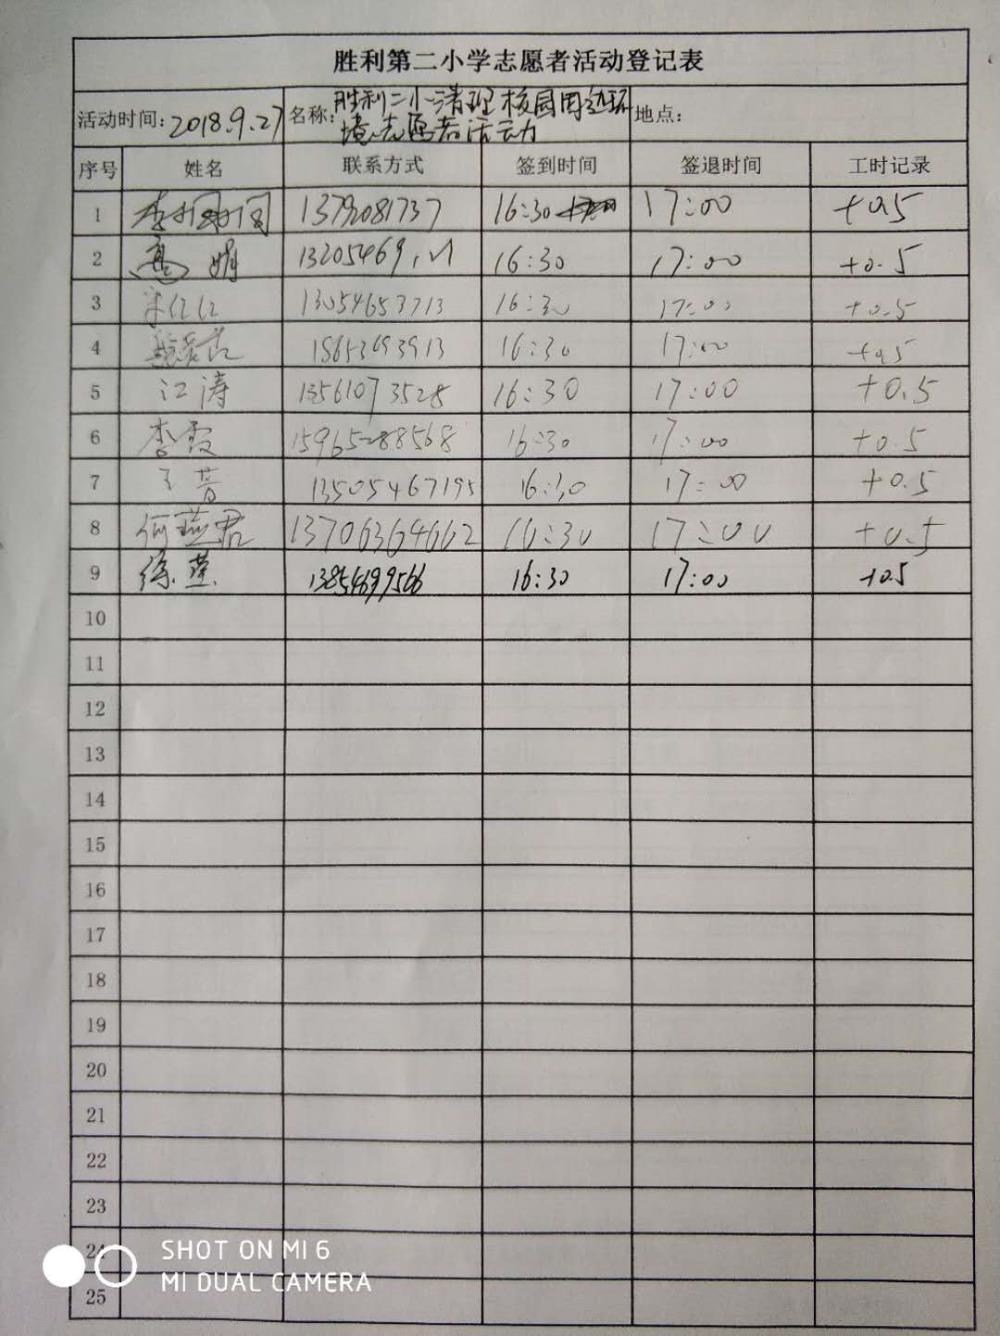 胜利第二小学志愿者活动登记表
活动时间: 2018.9.27 名称: 胜利二小清理校园周边环境志愿者活动 地点:
序号 姓名 联系方式 签到时间 签退时间 工时记录
1 13792081737 16:30 17:00 +0.5
2 高娟 16:30 17:00 +0.5
3 13054653713 16:30 17:00 +0.5
4 16:30 17:00 +0.5
5 江涛 13561073528 16:30 17:00 +0.5
6 李霞 15965288568 16:30 17:00 +0.5
7 王芳 13505467195 16:30 17:00 +0.5
8 何燕君 13706364662 16:30 17:00 +0.5
9 徐燕 13854699566 16:30 17:00 +0.5
10
11
12
13
14
15
16
17
18
19
20
21
22
23
24
25
SHOT ON MI 6
MI DUAL CAMERA